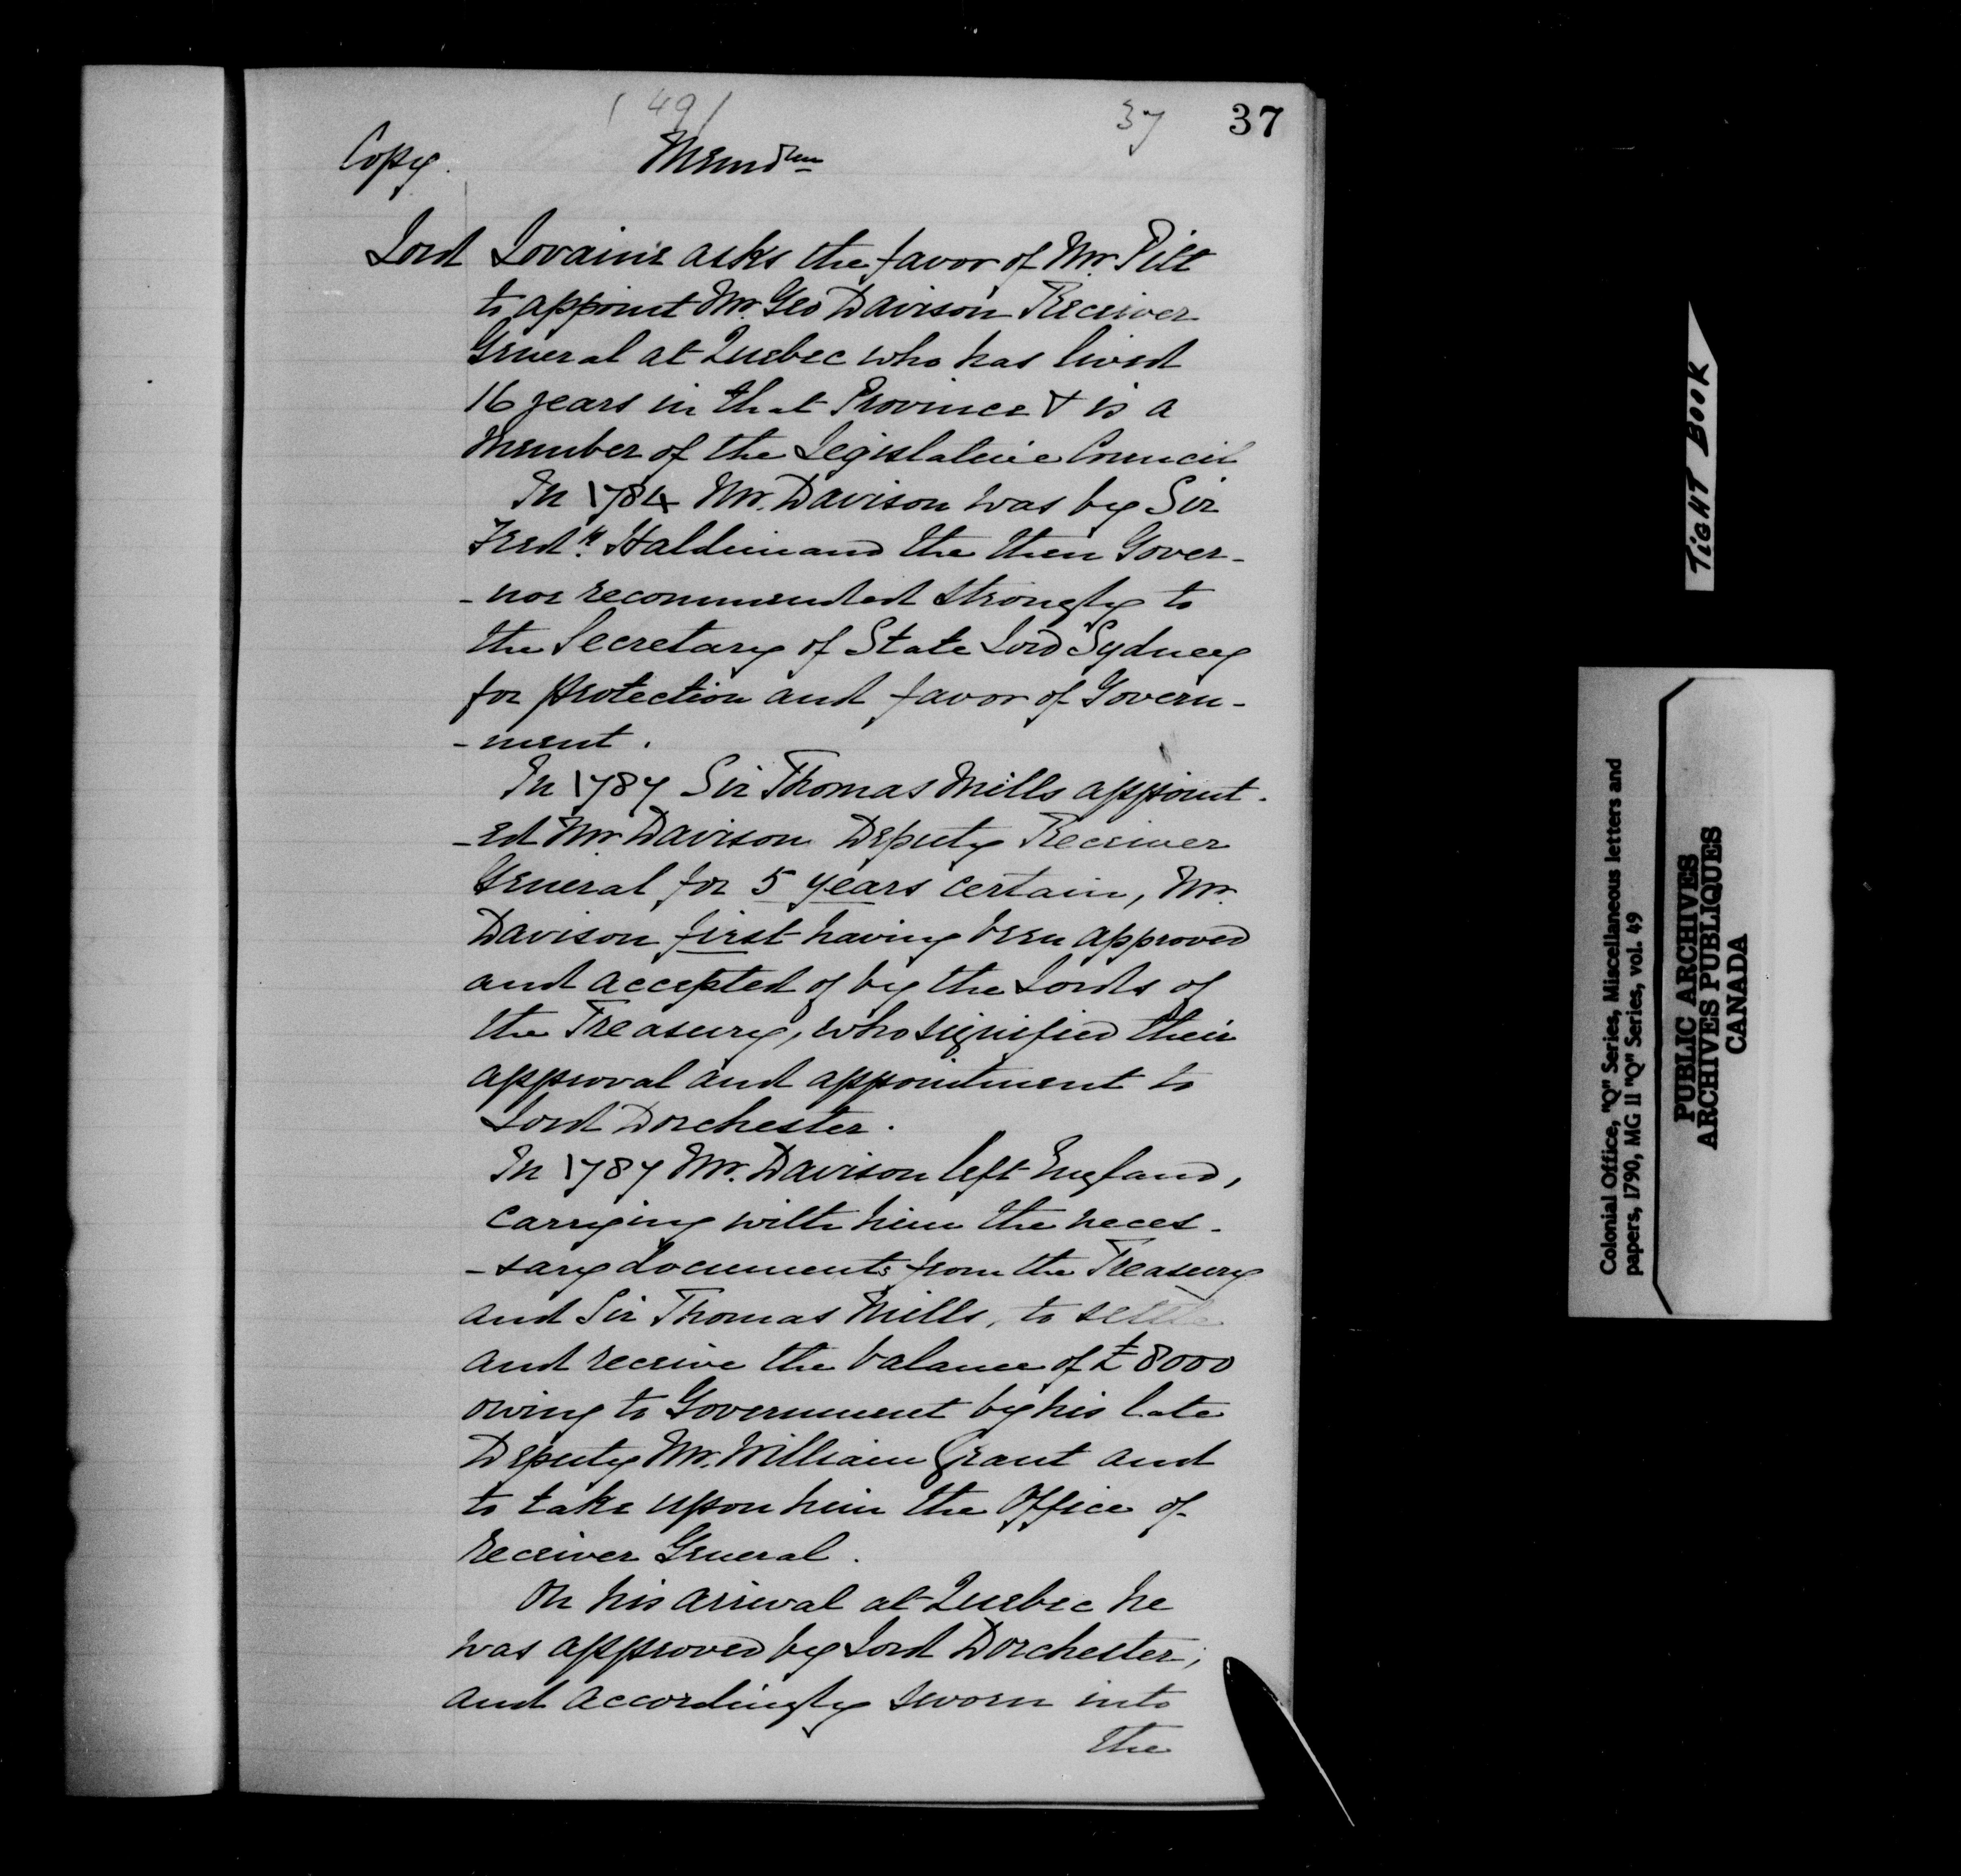 (49)
37 37
Copy. Memdm
Lord Lovaine asks the favor of Mr. Pitt
to appoint Mr. Geo Davison Receiver
General at Quebec who has lived
16 years in that Province & is a
Member of the Legislative Council
In 1784 Mr. Davison was by Sir
Fredk. Haldimand the then Gover-
-nor recommended strongly to
the Secretary of State Lord Sydney
for protection and favor of Govern-
-ment.
In 1787 Sir Thomas Mills appoint-
-ed Mr Davison Deputy Receiver
General for 5 years certain, Mr.
Davison first having been approved
and accepted of by the Lords of
the Treasury, who signified their
approval and appointment to
Lord Dorchester.
In 1787 Mr. Davison left England,
carrying with him the neces-
-sary documents from the Treasury
and Sir Thomas Mills, to settle
and receive the balance of £8000
owing to Government by his late
Deputy Mr. William Grant and
to take upon him the Office of
Receiver General.
On his arrival at Quebec he
was approved by Lord Dorchester;
and accordingly sworn into
the
TIGHT BOOK
Colonial Office, "Q" Series, Miscellaneous letters and
papers, 1790, MG 11 "Q" Series, vol. 49
PUBLIC ARCHIVES
ARCHIVES PUBLIQUES
CANADA